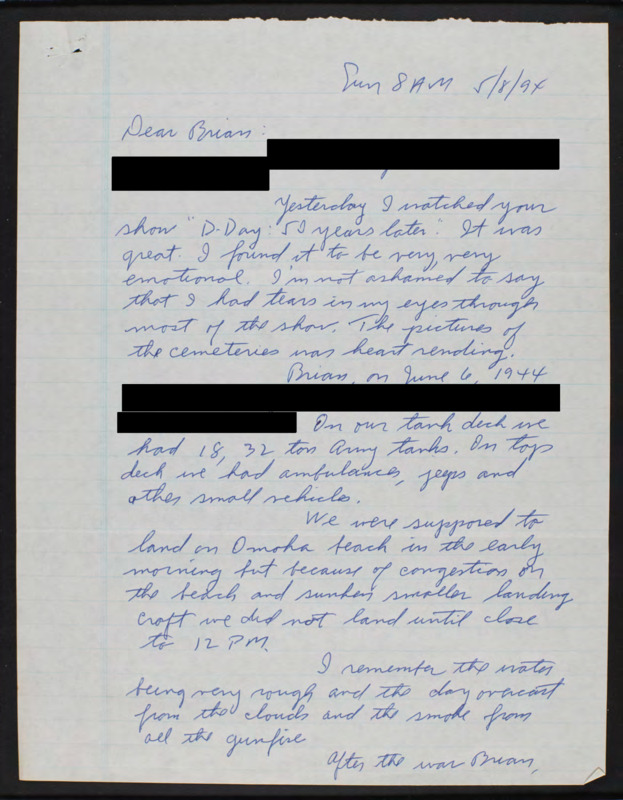 Sun 8 AM 5/8/94
Dear Brian:
Yesterday I watched your
show "D-Day: 50 years later". It was
great. I found it to be very, very
emotional. I'm not ashamed to say
that I had tears in my eyes through
most of the show. The pictures of
the cemeteries was heart rending.
Brian, on June 6, 1944
On our tank deck we
had 18, 32 ton Army tanks. On top
deck we had ambulances, jeeps and
other small vehicles.
We were supposed to
land on Omaha beach in the early
morning but because of congestion on
the beach and sunken smaller landing
craft we did not land until close
to 12 PM.
I remember the water
being very rough and the day overcast
from the clouds and the smoke from
all the gunfire
After the war Brian,